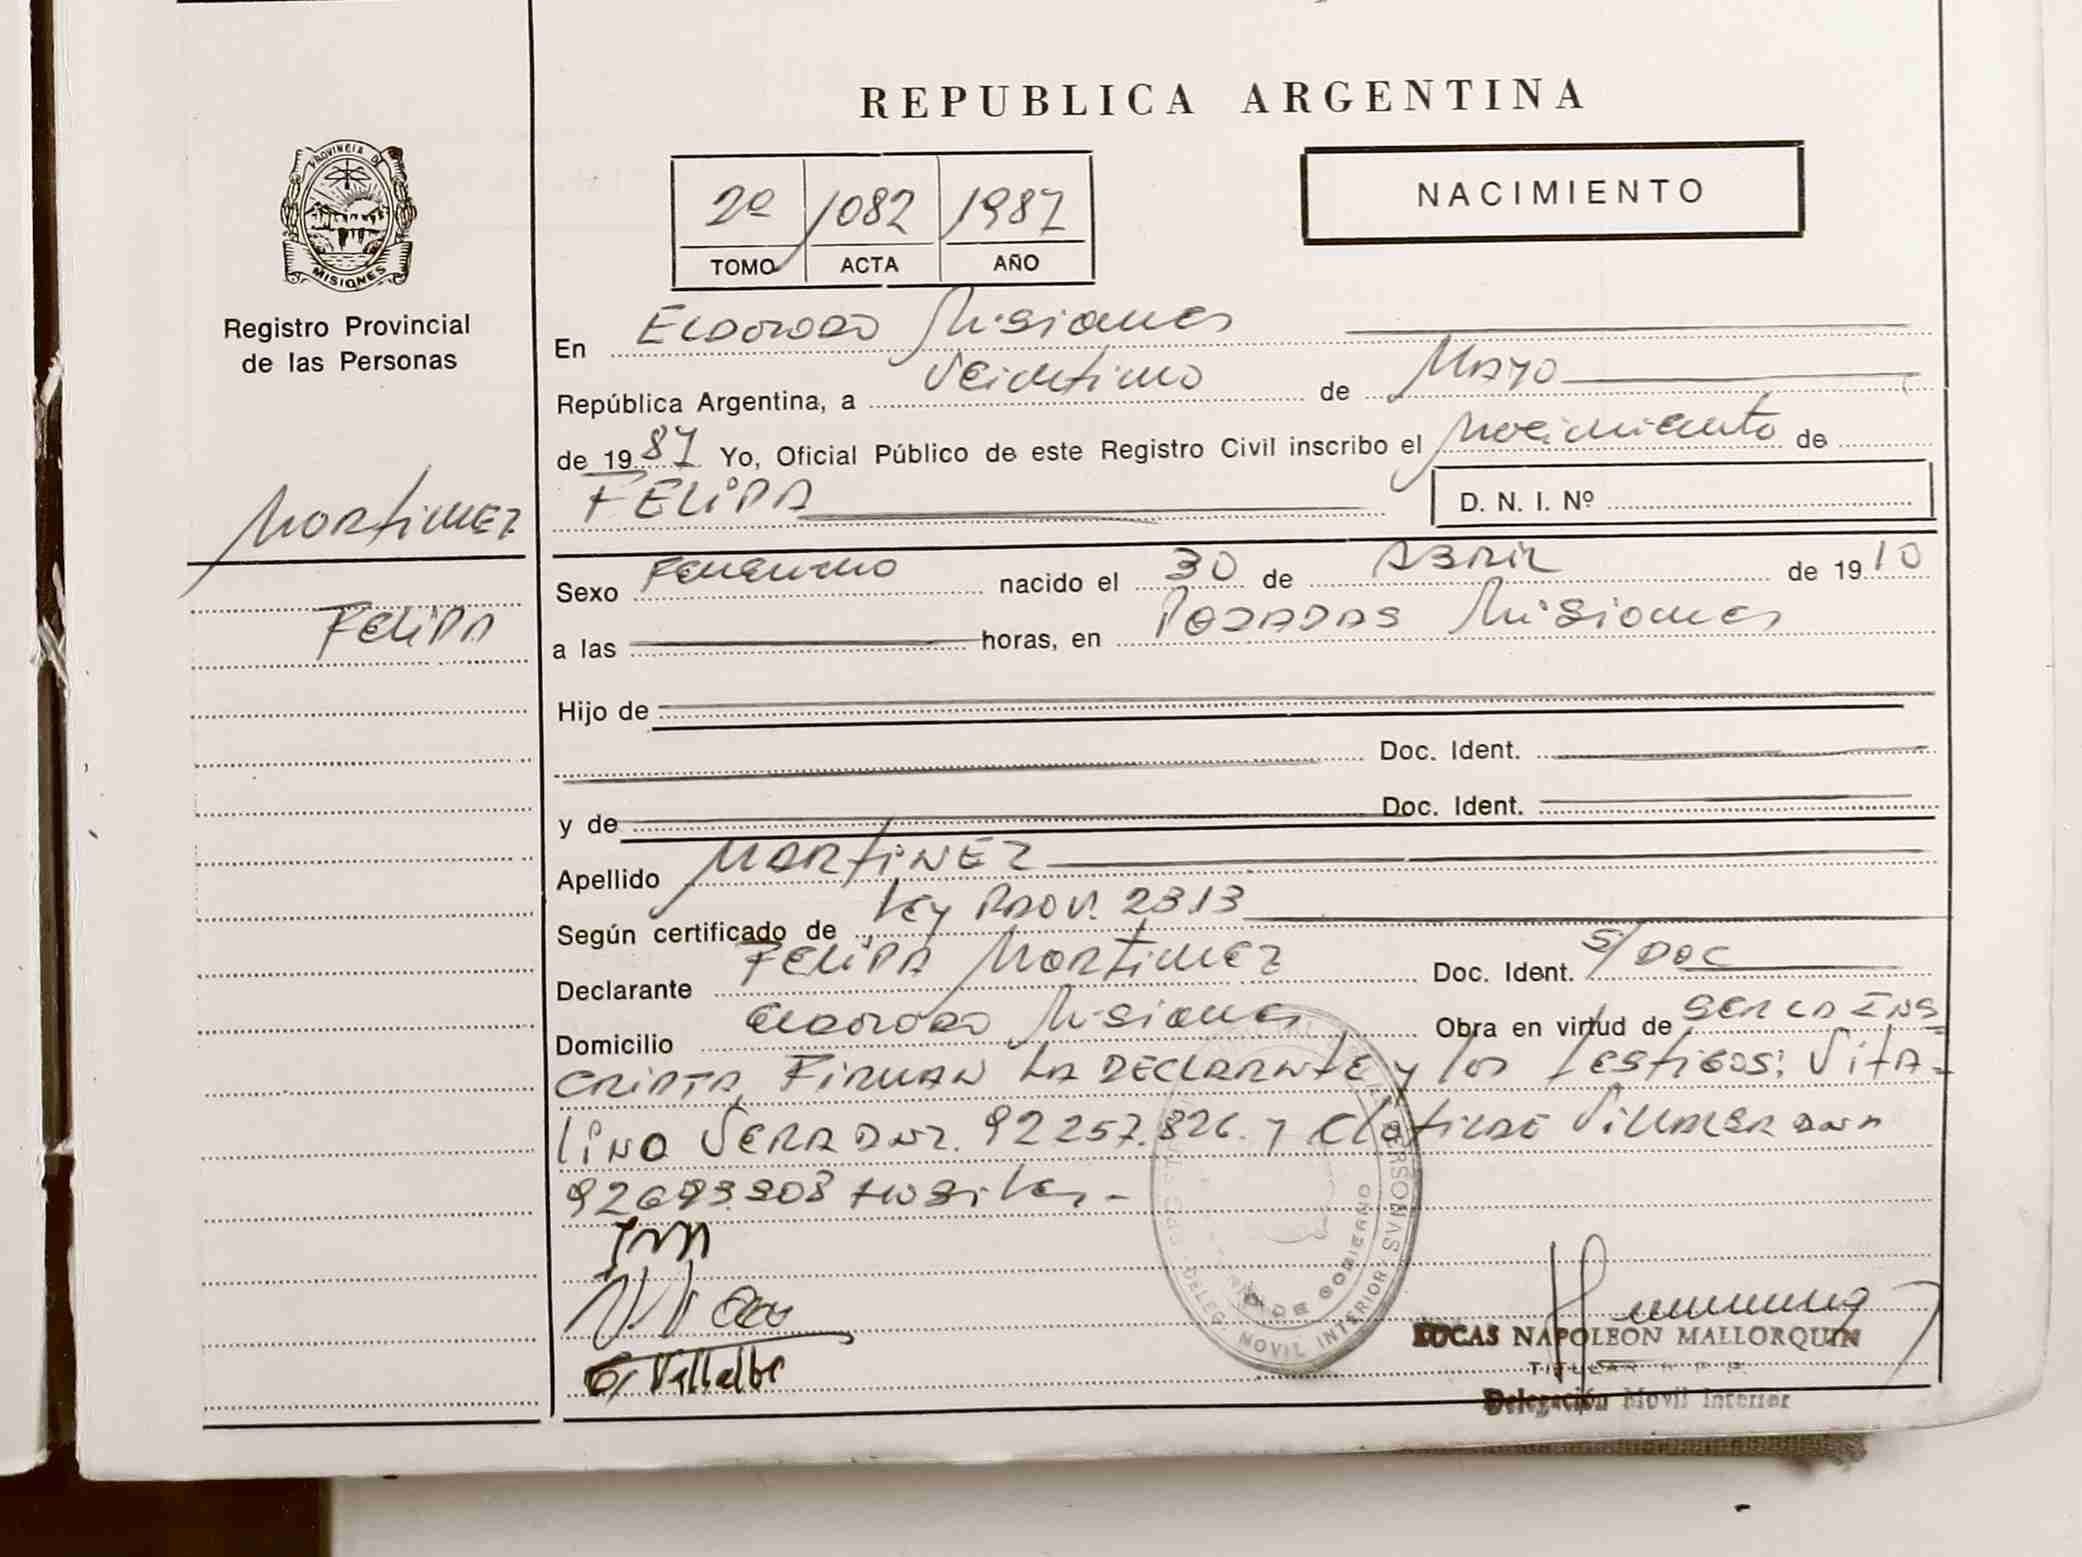 REPUBLICA ARGENTINA
PROVINCIA D
MISIONES
Registro Provincial
de las Personas
2º 1082 1987
TOMO ACTA AÑO
NACIMIENTO
En Eldorado Misiones
República Argentina, a de Mayo
de 1987 Yo, Oficial Público de este Registro Civil inscribo el Nacimiento de
FELIPA
D. N. I. Nº
Martinez
Felipa
Sexo Femenino nacido el 30 de Abril de 1910
a las horas, en Posadas Misiones
Hijo de
Doc. Ident.
y de Doc. Ident.
Apellido MARTINEZ
Según certificado de Ley Prov. 2313
Declarante Felipa Martinez Doc. Ident. S/DOC
Domicilio Eldorado Misiones Obra en virtud de SER LA INS
CRIPTA, FIRMAN LA DECLARANTE y los testigos: VITA-
LINO VERA DNI. 92257.826. y Clotilde
Villalba
DELEG. MOVIL INTERIOR
DE GOBIERNO
LUCAS NAPOLEON MALLORQUIN
TITULAR R. P. P.
Delegación Movil Interior